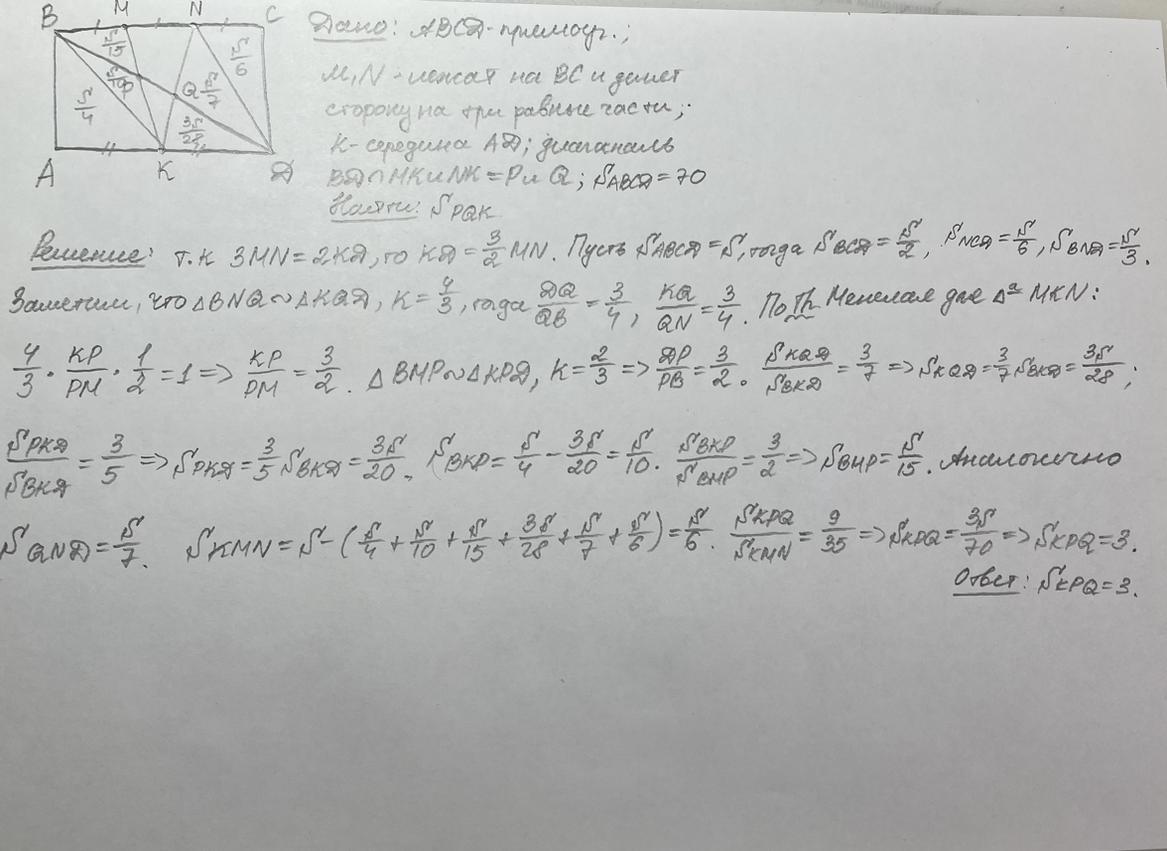 B M N C
S/15 S/10 P S/4 Q S/7 3S/28 S/6
A K D
Дано: ABCD-прямоуг.;
M, N - лежат на BC и делят
сторону на три равные части;
K - середина AD; диагональ
BD∩MK и NK = P и Q; S_ABCD = 70
Найти: S_PQK
Решение: т.к 3MN = 2KD, то KD = 3/2 MN. Пусть S_ABCD = S, тогда S_BCD = S/2, S_NCD = S/6, S_BND = S/3.
Заметим, что △BNQ ∾ △KQD, K = 4/3, тогда DQ/QB = 3/4, KQ/QN = 3/4. По Th Менелая для △ᵃ MKN:
4/3 · KP/PM · 1/2 = 1 => KP/PM = 3/2. △BMP ∾ △KPD, K = 2/3 => DP/PB = 3/2. S_KQD/S_BKD = 3/7 => S_KQD = 3/7 S_BKD = 3S/28;
S_PKD/S_BKD = 3/5 => S_PKD = 3/5 S_BKD = 3S/20. S_BKP = S/4 - 3S/20 = S/10. S_BKP/S_BMP = 3/2 => S_BMP = S/15. Аналогично
S_QND = S/7. S_KMN = S - (S/4 + S/10 + S/15 + 3S/28 + S/7 + S/6) = S/6. S_KPQ/S_KMN = 9/35 => S_KPQ = 3S/70 => S_KPQ = 3.
Ответ: S_KPQ = 3.